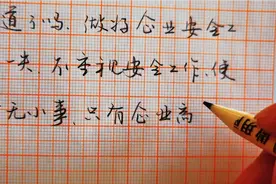 道了吗. 做好企业安全工
一类. 不重视安全工作, 使
无小事, 只有企业高